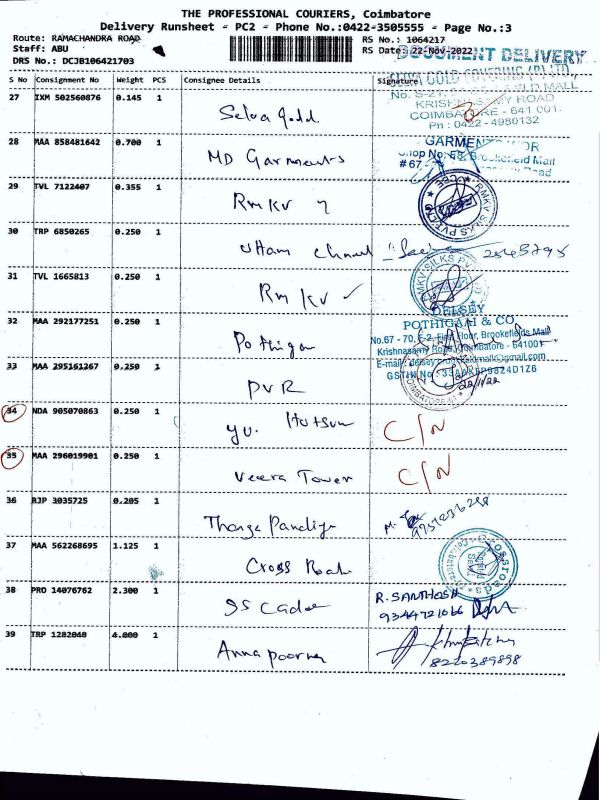 THE PROFESSIONAL COURIERS, Coimbatore
Delivery Runsheet - PC2 - Phone No.:0422-3505555 - Page No.:3
Route: RAMACHANDRA ROAD RS No.: 1064217
Staff: ABU RS Date: 22-Nov-2022
DRS No.: DCJB106421703
DOCUMENT DELIVERY
S No Consignment No Weight PCS Consignee Details Signature
SELVA GOLD COVERING (P) LTD.,
27 IXM 502560876 0.145 1 Selva gold
No. S-21, MALL
KRISHNASAMY ROAD
COIMBATORE - 641 001.
Ph : 0422 - 4980132
28 MAA 858481642 0.700 1 MD Garments
GARMENTS
Shop No: Brookefield Mall
#67 - Road
29 TVL 7122407 0.355 1 RmKV
RMKV SILKS PVT LTD
30 TRP 6850265 0.250 1 Uttam Chand
31 TVL 1665813 0.250 1 RmKV
RMKV SILKS PVT
32 MAA 292177251 0.250 1 Pothigai
DELSEY
POTHIGAAI & CO
No.67 - 70, E-2, First Floor, Brookefields Mall
Krishnasamy Road, Coimbatore - 641001
33 MAA 295161267 0.250 1 PVR
22/11/22
34 NDA 905070863 0.250 1 Hatsun C/N
35 MAA 296019901 0.250 1 Veera Tower C/N
36 RJP 3035725 0.205 1 Thanga Pandiyan
37 MAA 562268695 1.125 1 Cross Roads
Crossroads
38 PRO 14076762 2.300 1 SS Cadee R.SANTHOSH
9344721066
39 TRP 1282048 4.800 1 Annapoorna
8220389898